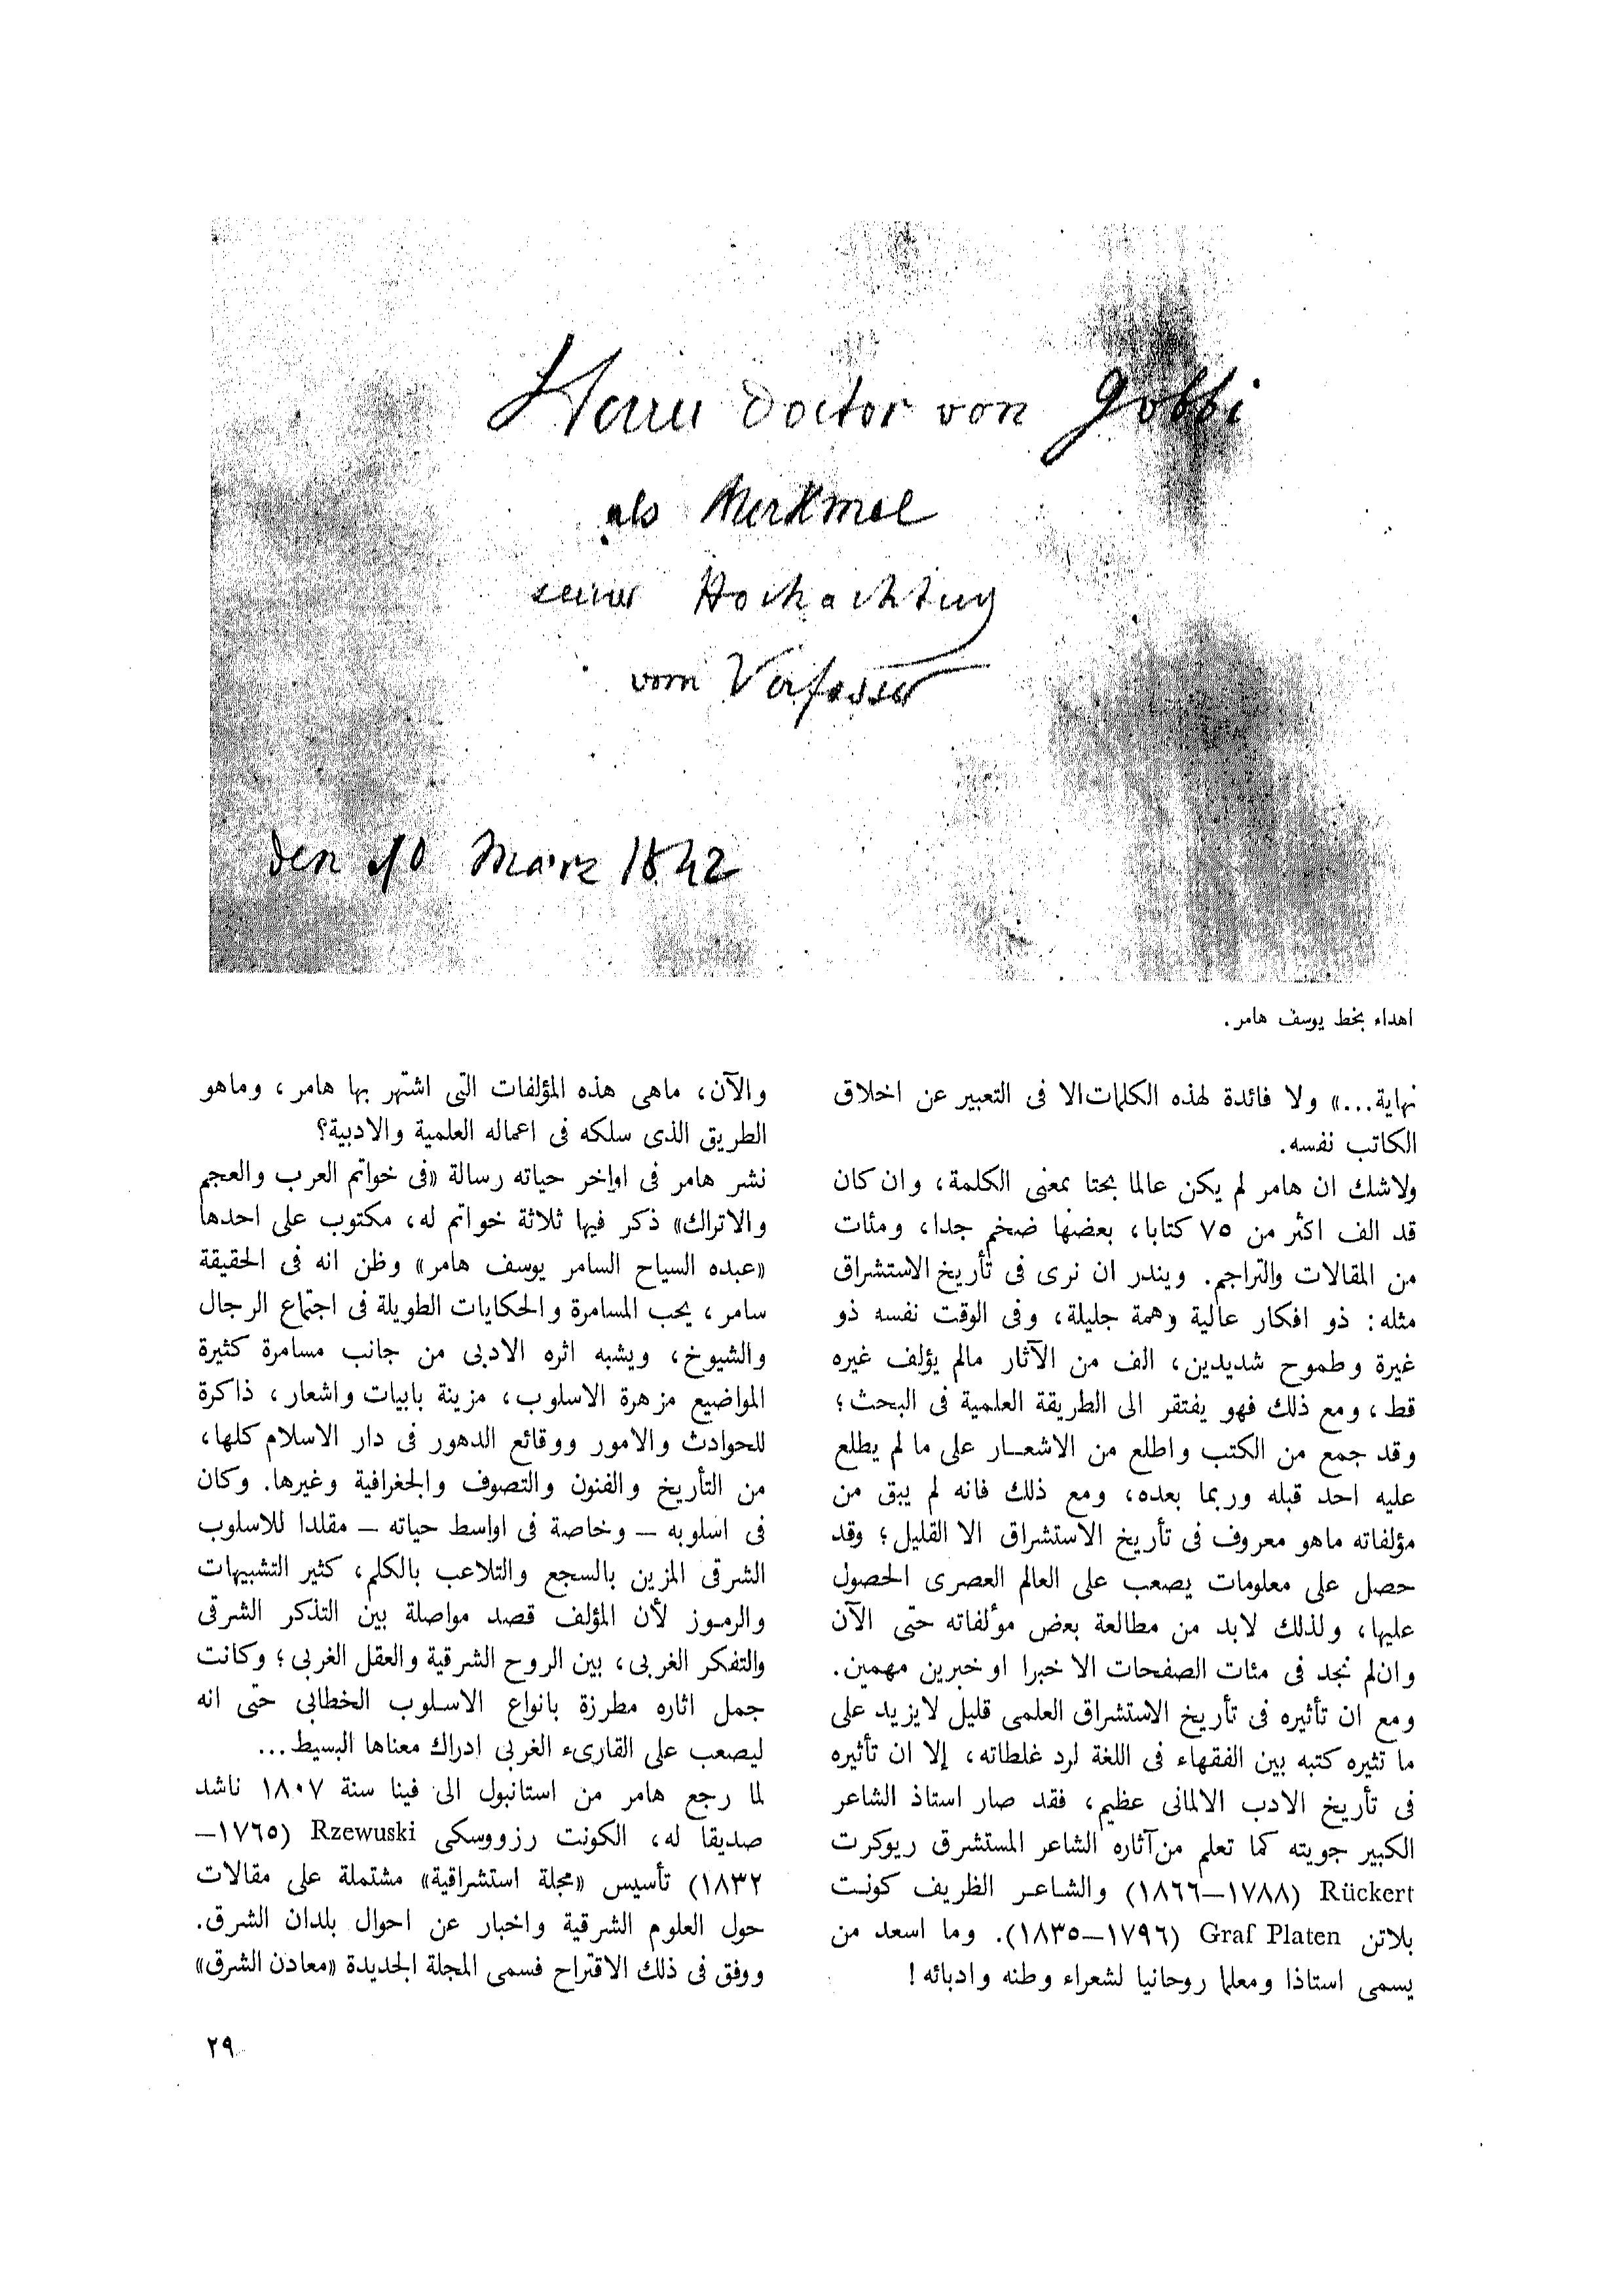 Herrn Doctor von Gobbi
als Merkmal
seiner Hochachtung
vom Verfasser
den 10 März 1842
اهداء بخط يوسف هامر.
نهاية...» ولا فائدة لهذه الكلمات الا فى التعبير عن اخلاق
الكاتب نفسه.
ولاشك ان هامر لم يكن عالما بحتا بمعنى الكلمة، وان كان
قد الف اكثر من ٧٥ كتابا، بعضها ضخم جدا، ومئات
من المقالات والتراجم. ويندر ان نرى فى تأريخ الاستشراق
مثله: ذو افكار عالية وهمة جليلة، وفى الوقت نفسه ذو
غيرة وطموح شديدين، الف من الآثار مالم يؤلف غيره
قط، ومع ذلك فهو يفتقر الى الطريقة العلمية فى البحث؛
وقد جمع من الكتب واطلع من الاشعار على ما لم يطلع
عليه احد قبله وربما بعده، ومع ذلك فانه لم يبق من
مؤلفاته ماهو معروف فى تأريخ الاستشراق الا القليل؛ وقد
حصل على معلومات يصعب على العالم العصرى الحصول
عليها، ولذلك لابد من مطالعة بعض مؤلفاته حتى الآن
وان لم نجد فى مئات الصفحات الا خبرا او خبرين مهمين.
ومع ان تأثيره فى تأريخ الاستشراق العلمى قليل لايزيد على
ما تثيره كتبه بين الفقهاء فى اللغة لرد غلطاته، إلا ان تأثيره
فى تأريخ الادب الالمانى عظيم، فقد صار استاذ الشاعر
الكبير جويته كما تعلم من آثاره الشاعر المستشرق ريوكرت
Rückert (١٧٨٨–١٨٦٦) والشاعر الظريف كونت
بلاتن Graf Platen (١٧٩٦–١٨٣٥). وما اسعد من
يسمى استاذا ومعلما روحانيا لشعراء وطنه وادبائه!
والآن، ماهى هذه المؤلفات التى اشتهر بها هامر، وماهو
الطريق الذى سلكه فى اعماله العلمية والادبية؟
نشر هامر فى اواخر حياته رسالة «فى خواتم العرب والعجم
والاتراك» ذكر فيها ثلاثة خواتم له، مكتوب على احدها
«عبده السياح السامر يوسف هامر» وظن انه فى الحقيقة
سامر، يحب المسامرة والحكايات الطويلة فى اجتماع الرجال
والشيوخ، ويشبه اثره الادبى من جانب مسامرة كثيرة
المواضيع مزهرة الاسلوب، مزينة بابيات واشعار، ذاكرة
للحوادث والامور ووقائع الدهور فى دار الاسلام كلها،
من التأريخ والفنون والتصوف والجغرافية وغيرها. وكان
فى اسلوبه – وخاصة فى اواسط حياته – مقلدا للاسلوب
الشرقى المزين بالسجع والتلاعب بالكلم، كثير التشبيهات
والرموز لأن المؤلف قصد مواصلة بين التذكر الشرقى
والتفكر الغربى، بين الروح الشرقية والعقل الغربى؛ وكانت
جمل اثاره مطرزة بانواع الاسلوب الخطابى حتى انه
ليصعب على القارىء الغربى ادراك معناها البسيط...
لما رجع هامر من استانبول الى فينا سنة ١٨٠٧ ناشد
صديقا له، الكونت رزووسكى Rzewuski (١٧٦٥–
١٨٣٢) تأسيس «مجلة استشراقية» مشتملة على مقالات
حول العلوم الشرقية واخبار عن احوال بلدان الشرق.
ووفق فى ذلك الاقتراح فسمى المجلة الجديدة «معادن الشرق»
٢٩